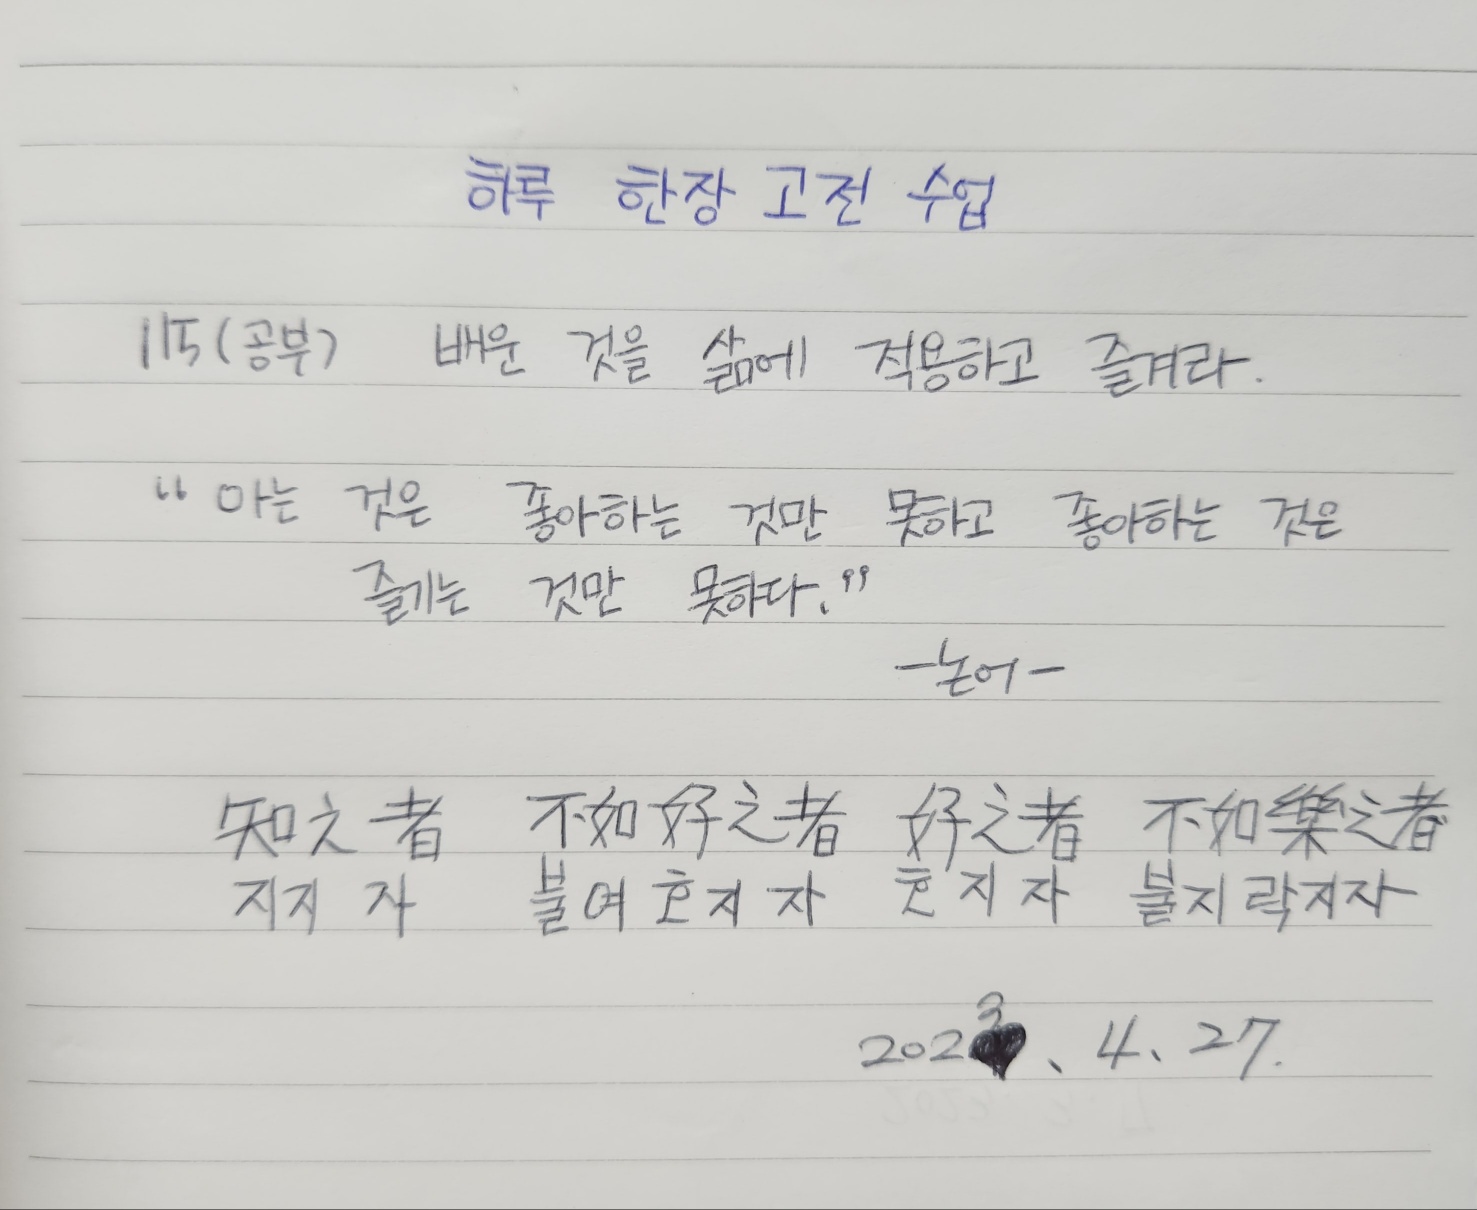 하루 한장 고전 수업
115(공부) 배운 것을 삶에 적용하고 즐겨라.
“아는 것은 좋아하는 것만 못하고 좋아하는 것은
즐기는 것만 못하다.”
-논어-
知之者 不如好之者 好之者 不如樂之者
지지자 불여호지자 호지자 불지락지자
2023. 4. 27.